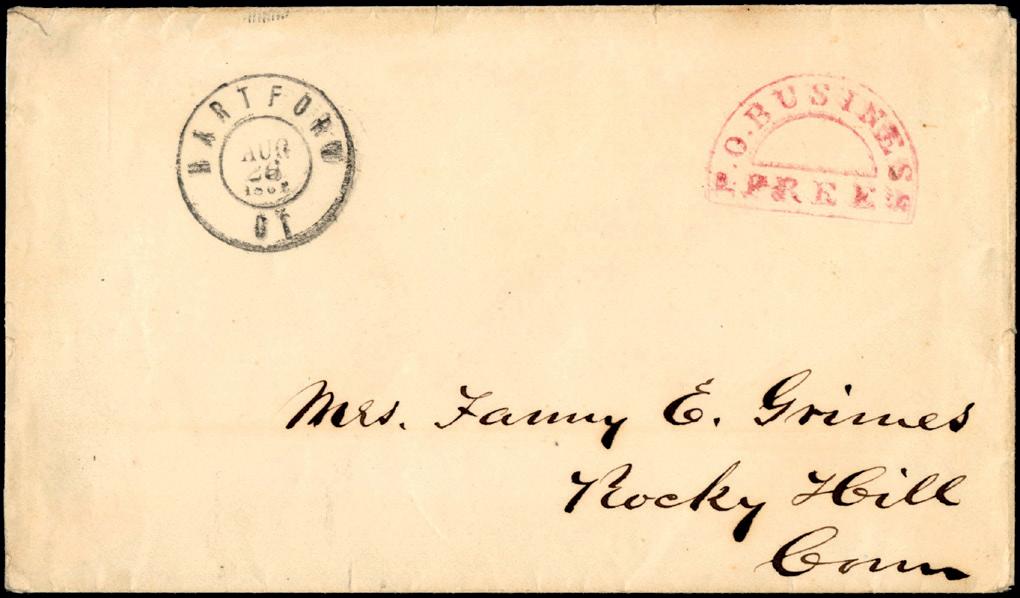 HARTFORD
AUG
28
CT
P.O. BUSINESS
FREE
Mrs. Fanny E. Grimes
Rocky Hill
Conn